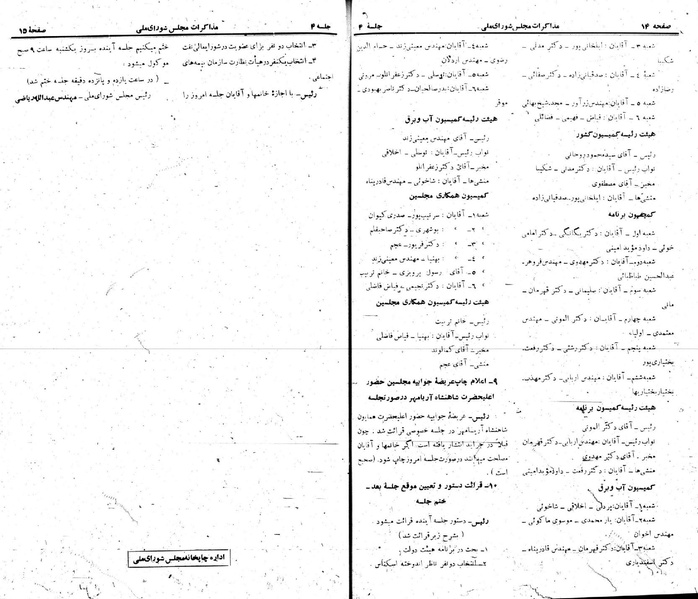 صفحه ۱۴
مذاکرات مجلس شورای ملی
جلسهٔ ۴
شعبه ۳ ـ آقایان : ایلخانی‌پور ـ دکتر مدنی ـ
شکیبا
شعبه ۴ ـ آقایان : صدقیانی‌زاده ـ دکتر صفائی ـ
رضازاده
شعبه ۵ ـ آقایان : مهندس زرآور ـ مجد ـ شیخ‌بهائی
شعبه ۶ ـ آقایان : فیاض ـ فهیمی ـ فضائلی
هیئت رئیسه کمیسیون کشور
رئیس ـ آقای سیدمحمود روحانی
نواب رئیس ـ آقایان : دکتر مدنی ـ شکیبا
مخبر ـ آقای مصطفوی
منشی‌ها ـ آقایان : ایلخانی‌پور ـ صدقیانی‌زاده
کمیسیون برنامه
شعبه اول ـ آقایان : دکتر یگانگی ـ دکتر امامی
خوئی ـ داود مؤید امینی
شعبه دوم ـ آقایان : دکتر مهدوی ـ مهندس فروهر ـ
عبدالحسین طباطبائی
شعبه سوم ـ آقایان : سلیمانی ـ دکتر قهرمان ـ
مانی
شعبه چهارم ـ آقایان : دکتر الموتی ـ مهندس
معتمدی ـ اولیاء
شعبه پنجم ـ آقایان : دکتر رشتی ـ دکتر رفعت ـ
بختیاری‌پور
شعبه ششم ـ آقایان : مهندس اربابی ـ دکتر مهذب ـ
بختیار بختیاریها
هیئت رئیسه کمیسیون برنامه
رئیس ـ آقای دکتر الموتی
نواب رئیس ـ آقایان : مهندس اربابی ـ دکتر قهرمان
مخبر ـ آقای دکتر مهدوی
منشی‌ها ـ آقایان : دکتر رفعت ـ داود مؤید امینی
کمیسیون آب و برق
شعبه ۱ ـ آقایان : پردلی ـ اخلاقی ـ شاخوئی
شعبه ۲ ـ آقایان : یارمحمدی ـ موسوی ماکوئی ـ
مهندس اخوان
شعبه ۳ ـ آقایان : دکتر قهرمان ـ مهندس قادرپناه ـ
دکتر اسفندیاری
شعبه ۴ ـ آقایان : مهندس معینی‌زند ـ حسام‌الدین
رضوی ـ مهندس اردلان
شعبه ۵ ـ آقایان : توسلی ـ دکتر زعفرانلو ـ مروتی
شعبه ۶ ـ آقایان : بدرصالحیان ـ دکتر ناصر بهبودی ـ
موقر
هیئت رئیسه کمیسیون آب و برق
رئیس ـ آقای مهندس معینی‌زند
نواب رئیس ـ آقایان : توسلی ـ اخلاقی
مخبر ـ آقای دکتر زعفرانلو
منشی‌ها ـ آقایان : شاخوئی ـ مهندس قادرپناه
کمیسیون همکاری مجلسین
شعبه ۱ ـ آقایان : سرتیپ‌پور ـ صدری کیوان
» ۲ ـ » : بوشهری ـ دکتر صاحبقلم
» ۳ ـ » : دکتر فربور ـ عجم
» ۴ ـ » : بهنیا ـ مهندس معینی‌زند
» ۵ ـ آقای رسول پرویزی ـ خانم تربیت
» ۶ ـ آقایان : دکتر نجیمی ـ فیاض فاضلی
هیئت رئیسه کمیسیون همکاری مجلسین
رئیس ـ خانم تربیت
نواب رئیس ـ آقایان : بهنیا ـ فیاض فاضلی
مخبر ـ آقای کمالوند
منشی ـ آقای عجم
۹ ـ اعلام چاپ عریضهٔ جوابیه مجلسین حضور
اعلیحضرت شاهنشاه آریامهر در صورتجلسه
رئیس ـ عریضهٔ جوابیه حضور اعلیحضرت همایون
شاهنشاه آریامهر در جلسه خصوصی قرائت شد . چون
قبلاً در جراید انتشار یافته است اگر خانمها و آقایان
مصلحت میدانند در صورت جلسه امروز چاپ شود. (صحیح
است) .
۱۰ ـ قرائت دستور و تعیین موقع جلسهٔ بعد ـ
ختم جلسه
رئیس ـ دستور جلسه آینده قرائت میشود
( بشرح زیر قرائت شد )
۱ ـ بحث در برنامه هیئت دولت
۲ ـ انتخاب دو نفر ناظر اندوخته اسکناس .
جلسه ۴
مذاکرات مجلس شورای ملی
صفحهٔ ۱۵
۳ ـ انتخاب دو نفر برای عضویت در شورایعالی نفت
۴ ـ انتخاب یکنفر در هیأت نظارت سازمان بیمه‌های
اجتماعی .
رئیس ـ با اجازهٔ خانمها و آقایان جلسه امروز را
ختم میکنیم جلسه آینده بروز یکشنبه ساعت ۹ صبح
موکول میشود .
( در ساعت یازده و پانزده دقیقه جلسه ختم شد)
رئیس مجلس شورای ملی ـ مهندس عبدالله ریاضی
اداره چاپخانه مجلس شورای ملی